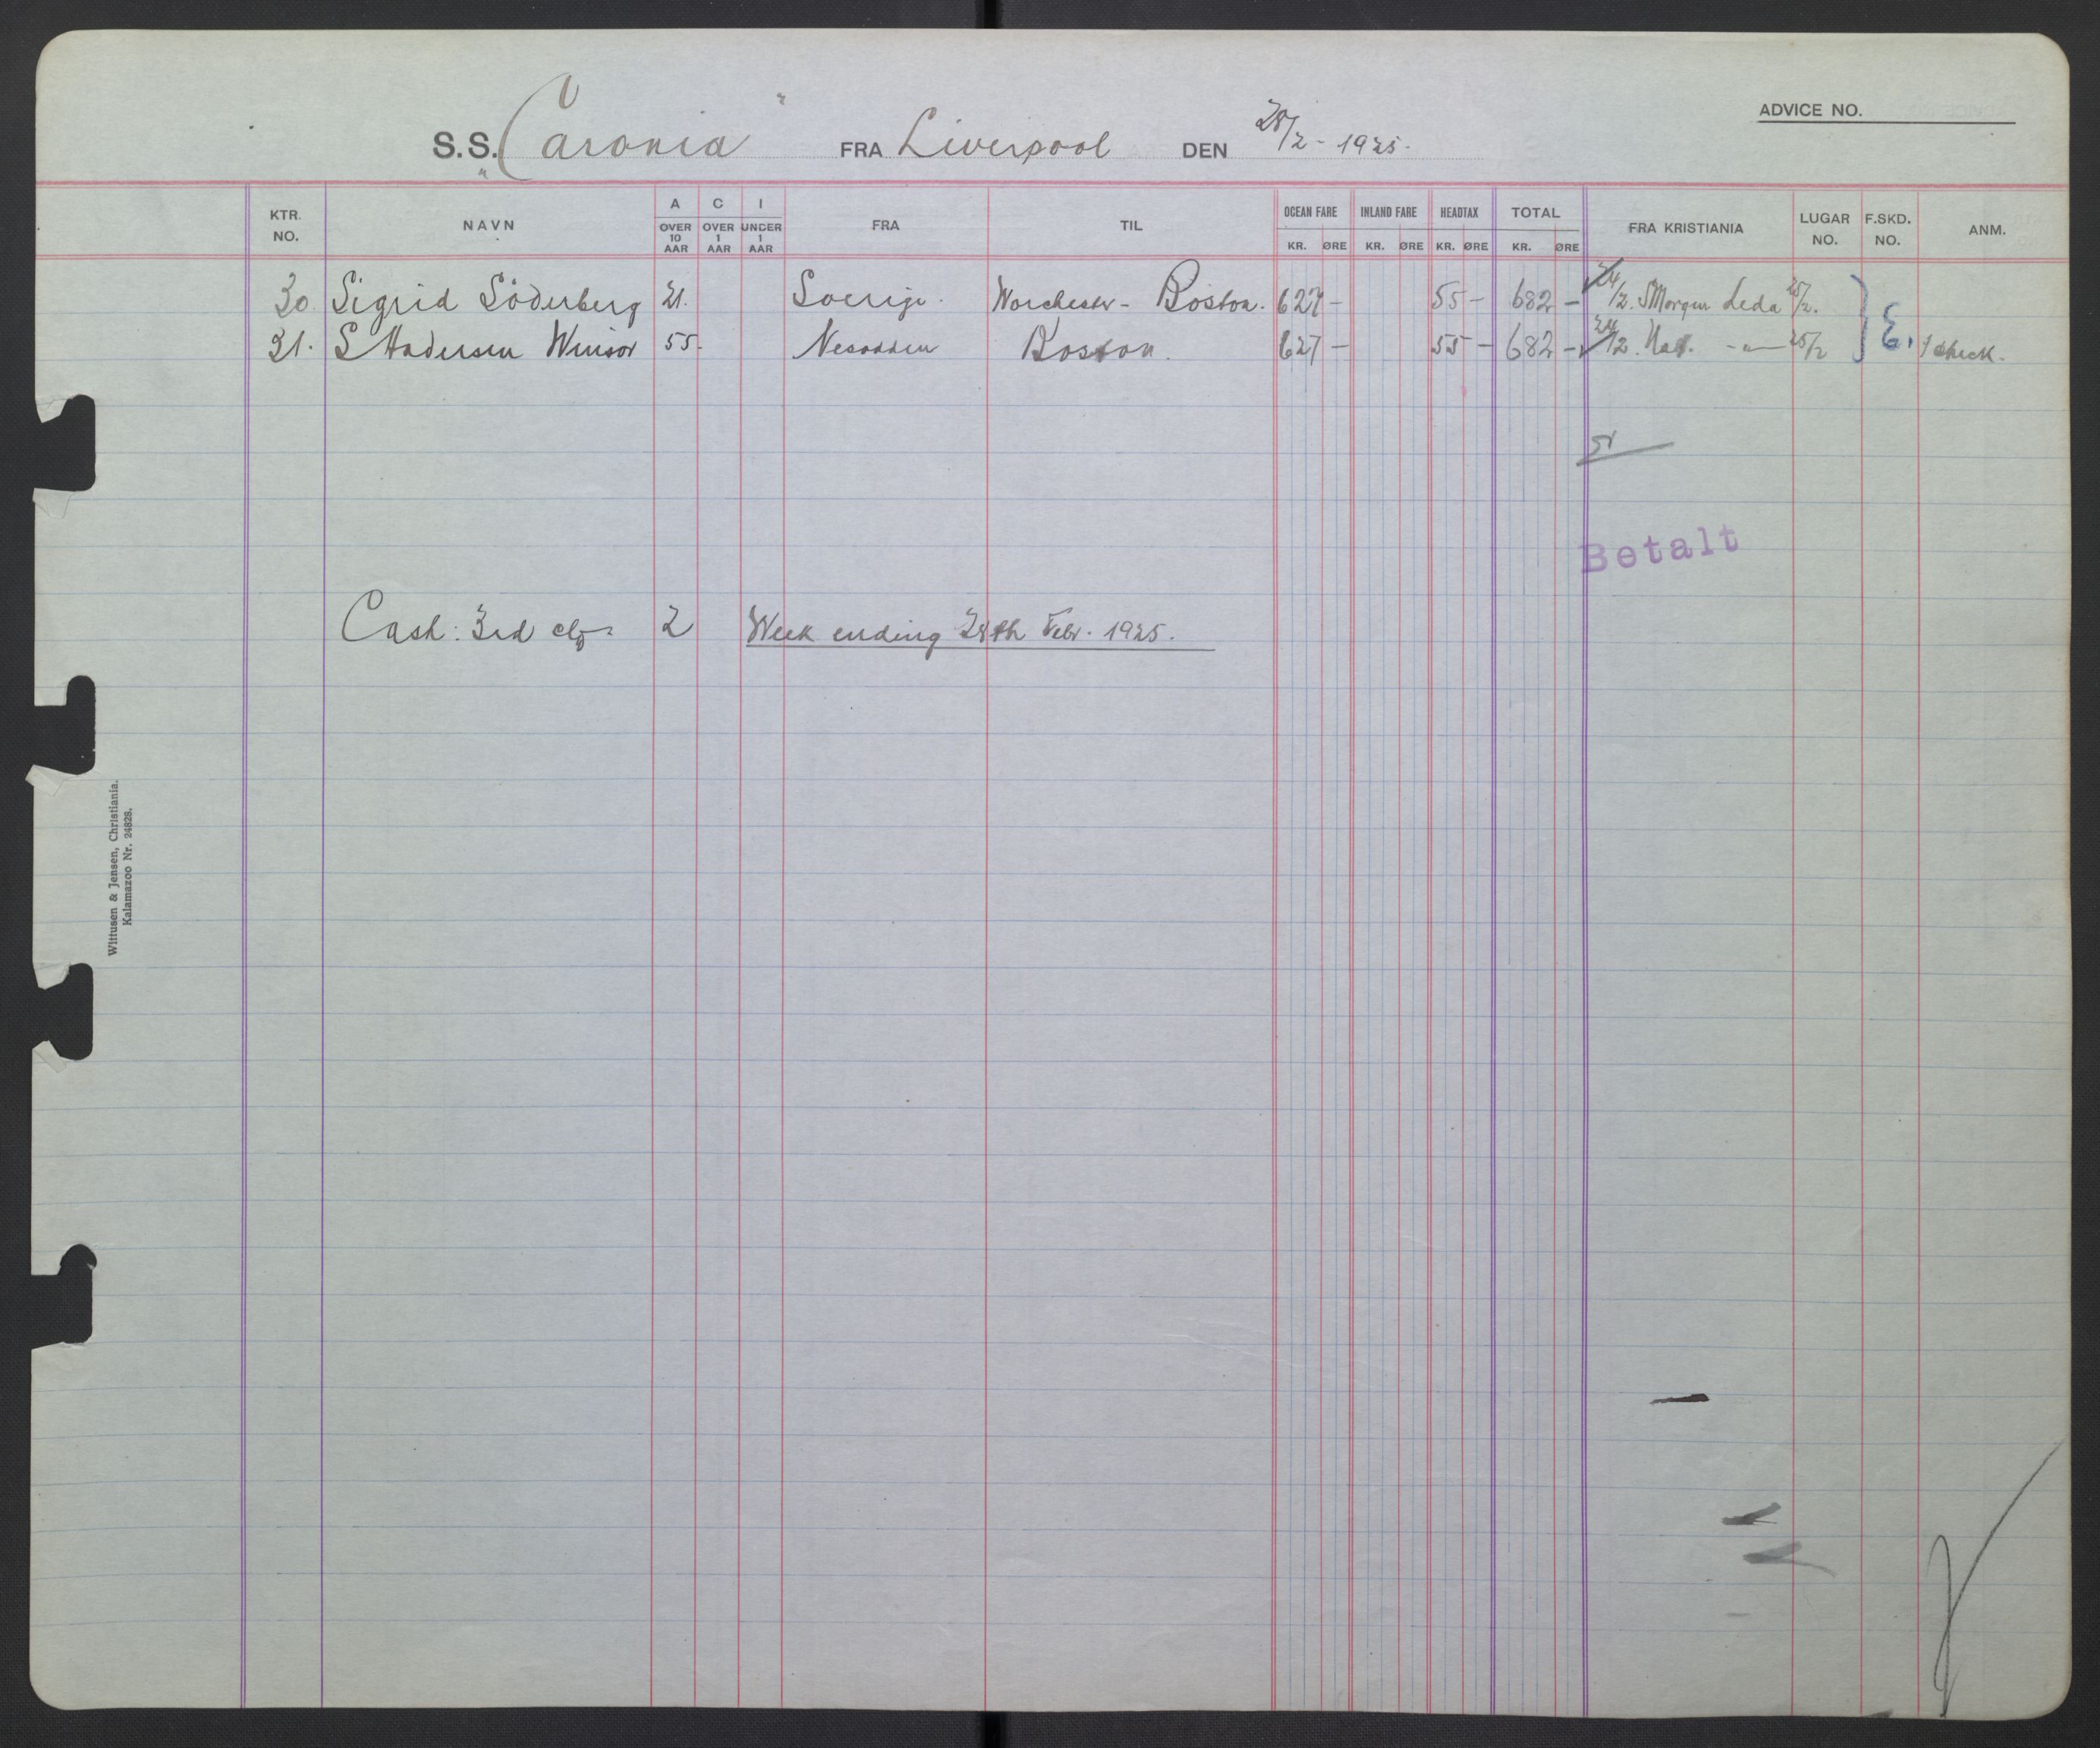 ADVICE NO.
S.S. "Caronia" FRA Liverpool DEN 28/2 - 1925.
KTR. NO. NAVN A OVER 10 AAR C OVER 1 AAR I UNDER 1 AAR FRA TIL OCEAN FARE KR. ØRE INLAND FARE KR. ØRE HEADTAX KR. ØRE TOTAL KR. ØRE FRA KRISTIANIA LUGAR NO. F.SKD. NO. ANM.
30. Sigrid Söderberg 21. Sverige. Worchester - Boston. 627 - 55 - 682 - 24/2. Morgen Leda 25/2.
31. S Andersen Winsor 55. Nesodden Boston. 627 - 55 - 682 - 24/2. - " - 25/2 E. 1 check.
Betalt
Cash: 3rd cl 2 Week ending 28th Febr. 1925.
Wittusen & Jensen, Christiania.
Kalamazoo Nr. 24828.